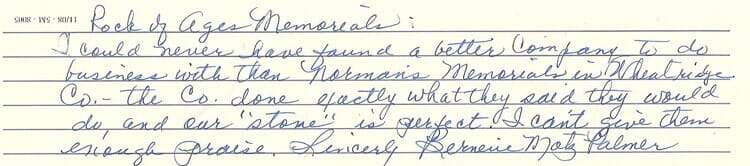 Rock of Ages Memorials:
11/08 - 5M - 8005
I could never have found a better Company to do
business with than Norman's Memorials in Wheatridge
Co. - the Co. done exactly what they said they would
do, and our "stone" is perfect. I can't give them
enough praise. Sincerely Berneice Motz Palmer